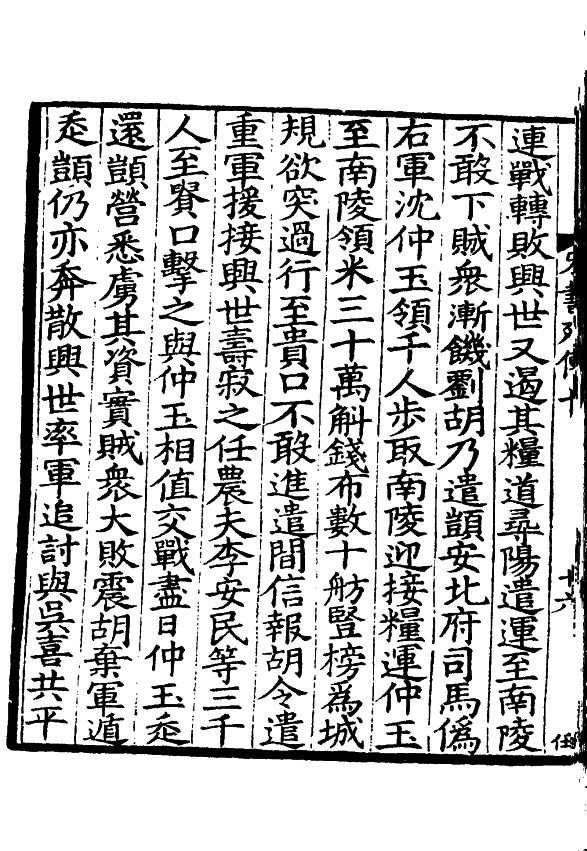 連戰轉敗興世又遏其糧道尋陽遣運至南陵
不敢下賊衆漸饑劉胡乃遣顗安北府司馬僞
右軍沈仲玉領千人步取南陵迎接糧運仲玉
至南陵領米三十萬斛錢布數十舫豎榜爲城
規欲突過行至貴口不敢進遣間信報胡令遣
重軍援接興世壽寂之任農夫李安民等三千
人至貴口擊之與仲玉相值交戰盡日仲玉走
還顗營悉虜其資實賊衆大敗震胡棄軍遁
走顗仍亦奔散興世率軍追討與吳喜共平